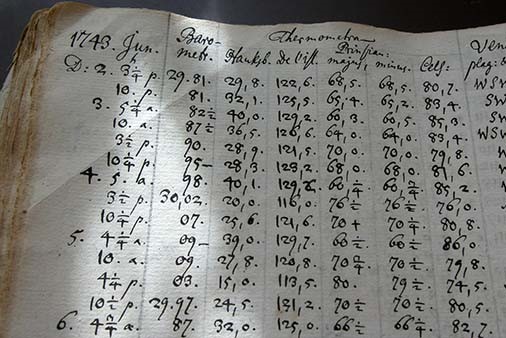 1743. Jun. Baromet. Thermometra Ven
Hauksb. de l'Isl. Prinsian: majus, minus. Cels: plag:
D: 2. 3¼ h p. 29.81. 29,8. 122,6. 68,5. 68,5. 80,7. WSW
10. p. 81. 32,1. 125,5. 65,4. 65,2. 83,4. SW
3. 5¼ a. 82½ 40,0. 129,2. 60,3. 60,5. 85,3. SW
10. a. 87½ 36,5. 126,6. 64,0. 64,0. 83,4. WSW
3½ p. 90. 28,9. 121,5. 70,0. 70,0. 79,8.
10¼ p. 95- 28,3. 123,2. 68,0. 68,0. 81,6.
4. 5. a. 98. 40,1. 129,2. 60¼ 60¾ 85,2.
3½ p. 30,02. 20,0. 116,0. 76½ 76½ 76,0.
10¼ p. 07. 25,6. 121,6. 70+ 70¼ 80,8.
5. 4¼ a. 09- 39,0. 129,7. 60½ 60½ 86,0.
10. a. 09. 27,8. 120,8. 70¾ 70½ 79,8.
4¼ p. 03. 15,0. 113,5. 80. 79½ 74,5.
10½ p. 29.97. 24,5. 121,2. 70½ 70½ 80,5.
6. 4¾ a. 87. 32,0. 125,0. 66½ 66¼ 82,7.